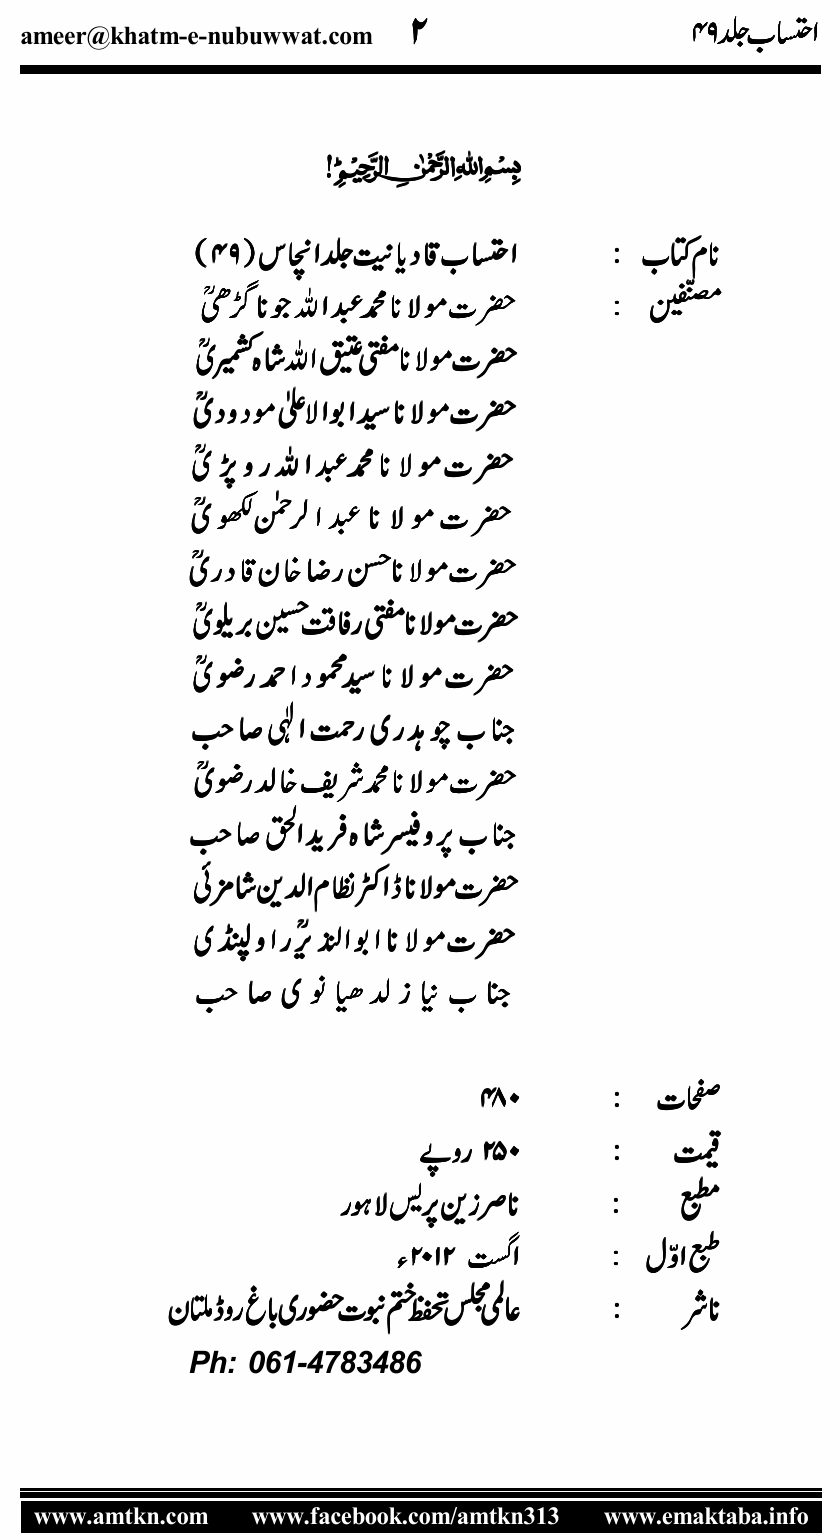 احتساب جلد ۴۹ ۲ ameer@khatm-e-nubuwwat.com
بِسْمِ اللهِ الرَّحْمٰنِ الرَّحِيْمِ!
نام کتاب : احتساب قادیانیت جلد انچاس (۴۹)
مصنّفین : حضرت مولانا محمد عبداللہ جونا گڑھیؒ
حضرت مولانا مفتی عتیق اللہ شاہ کشمیریؒ
حضرت مولانا سید ابوالاعلیٰ مودودیؒ
حضرت مولانا محمد عبداللہ روپڑیؒ
حضرت مولانا عبدالرحمٰن لکھویؒ
حضرت مولانا حسن رضا خان قادریؒ
حضرت مولانا مفتی رفاقت حسین بریلویؒ
حضرت مولانا سید محمود احمد رضویؒ
جناب چوہدری رحمت الٰہی صاحب
حضرت مولانا محمد شریف خالد رضویؒ
جناب پروفیسر شاہ فرید الحق صاحب
حضرت مولانا ڈاکٹر نظام الدین شامزئی
حضرت مولانا ابوالنذیرؒ راولپنڈی
جناب نیاز لدھیانوی صاحب
صفحات : ۴۸۰
قیمت : ۲۵۰ روپے
مطبع : ناصر زین پریس لاہور
طبع اوّل : اگست ۲۰۱۲ء
ناشر : عالمی مجلس تحفظ ختم نبوت حضوری باغ روڈ ملتان
Ph: 061-4783486
www.amtkn.com www.facebook.com/amtkn313 www.emaktaba.info